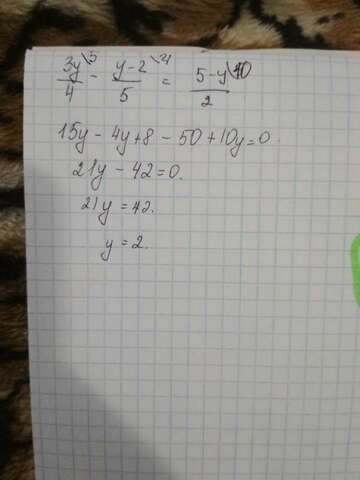 3y\5 / 4 - y-2\4 / 5 = 5-y\10 / 2
15y - 4y + 8 - 50 + 10y = 0.
21y - 42 = 0.
21y = 42.
y = 2.